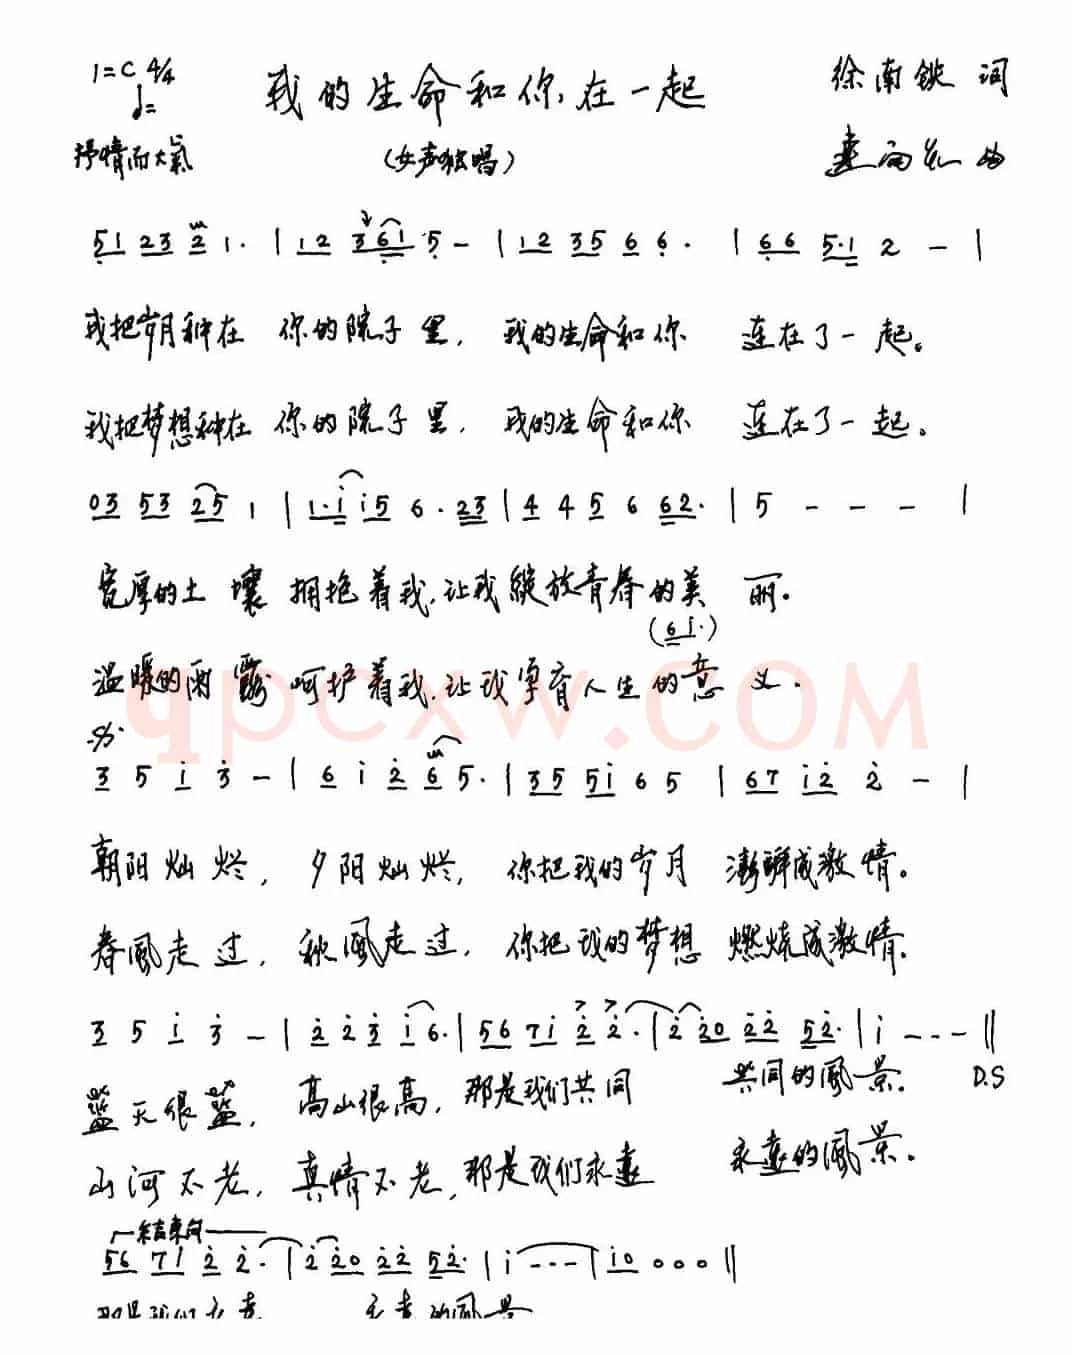 1=C 4/4
♩=
我的生命和你在一起
徐南铁 词
抒情而大氣
(女声独唱)
曲
5̣1 23 2 1· | 12 36̣1 5̣ - | 12 35 6 6· | 6̣6̣ 5̣·1 2 - |
我把岁月种在 你的院子里, 我的生命和你 连在了一起。
我把梦想种在 你的院子里, 我的生命和你 连在了一起。
03 53 25 1 | 1·i i5 6·23 | 4 4 5 6 62· | 5 - - - |
宽厚的土壤 拥抱着我,让我绽放青春的美丽。
(6i·)
温暖的雨露 呵护着我,让我孕育人生的意义.
3 5 i 3̇ - | 6 i 2̇ 6 5· | 35 5i 6 5 | 67 i2̇ 2̇ - |
朝阳灿烂, 夕阳灿烂, 你把我的岁月 澎湃成激情。
春風走过, 秋風走过, 你把我的梦想 燃烧成激情.
3 5 i 3̇ - | 2̇ 2̇ 3̇ i 6· | 56 7i 2̇ 2̇· | 2̇ 2̇0 2̇2̇ 52̇· | i - - - ‖
D.S
蓝天很蓝, 高山很高, 那是我们共同 共同的風景.
山河不老, 真情不老, 那是我们永远 永远的風景.
结束句
56 7i 2̇ 2̇· | 2̇ 2̇0 2̇2̇ 52̇· | i - - - | i0 0 0 0 ‖
那是我们永远 永远的风景
qpcxw.COM